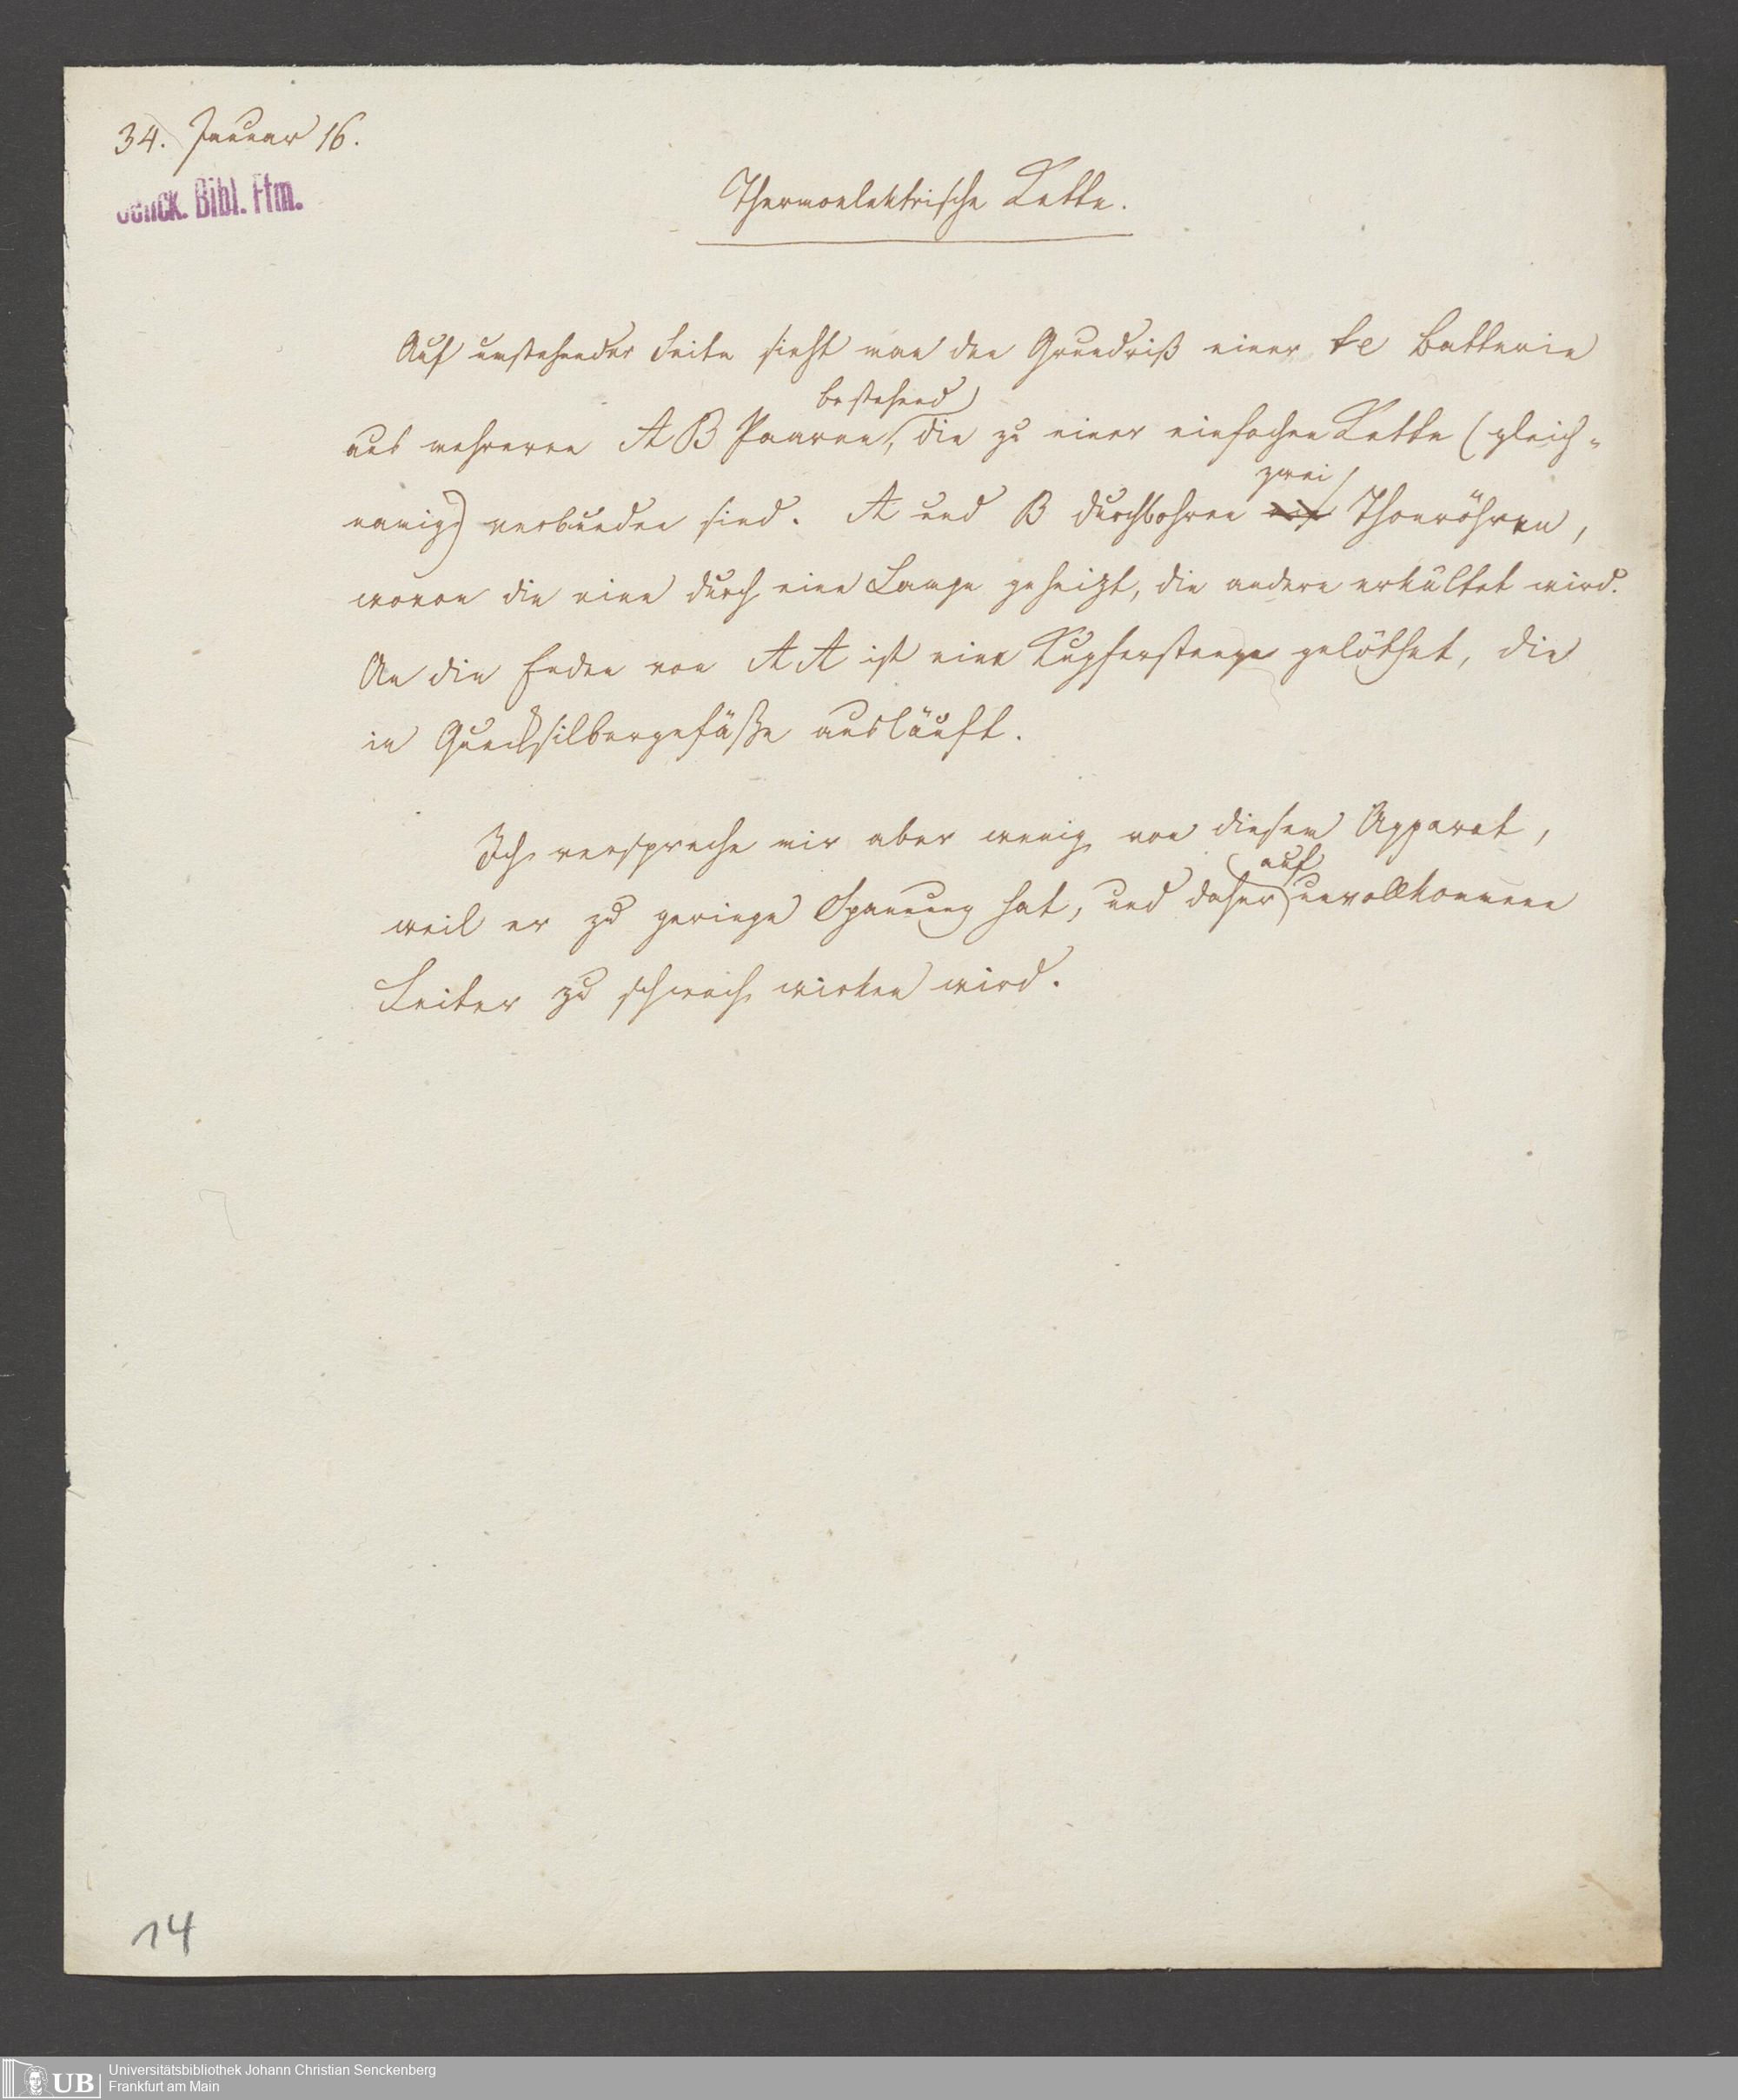 34. Januar 16.
Senck. Bibl. Ffm.
Thermoelektrische Kette.
Auf umstehender Seite sieht man den Grundriß einer te Batterie
bestehend
aus mehreren AB Paaren, die zu einer einfachen Kette (gleich-
namig) verbunden sind. A und B durchbohren
zwei
Thonröhren,
wovon die eine durch eine Lampe geheizt, die andere erkältet wird.
An die Enden von AA ist eine Kupferstange gelöthet, die
in Quecksilbergefäße ausläuft.
Ich verspreche mir aber wenig von diesem Apparat,
auf
weil er zu geringe Spannung hat, und daher unvollkommene
Leiter zu schwach wirken wird.
14
UB
Universitätsbibliothek Johann Christian Senckenberg
Frankfurt am Main